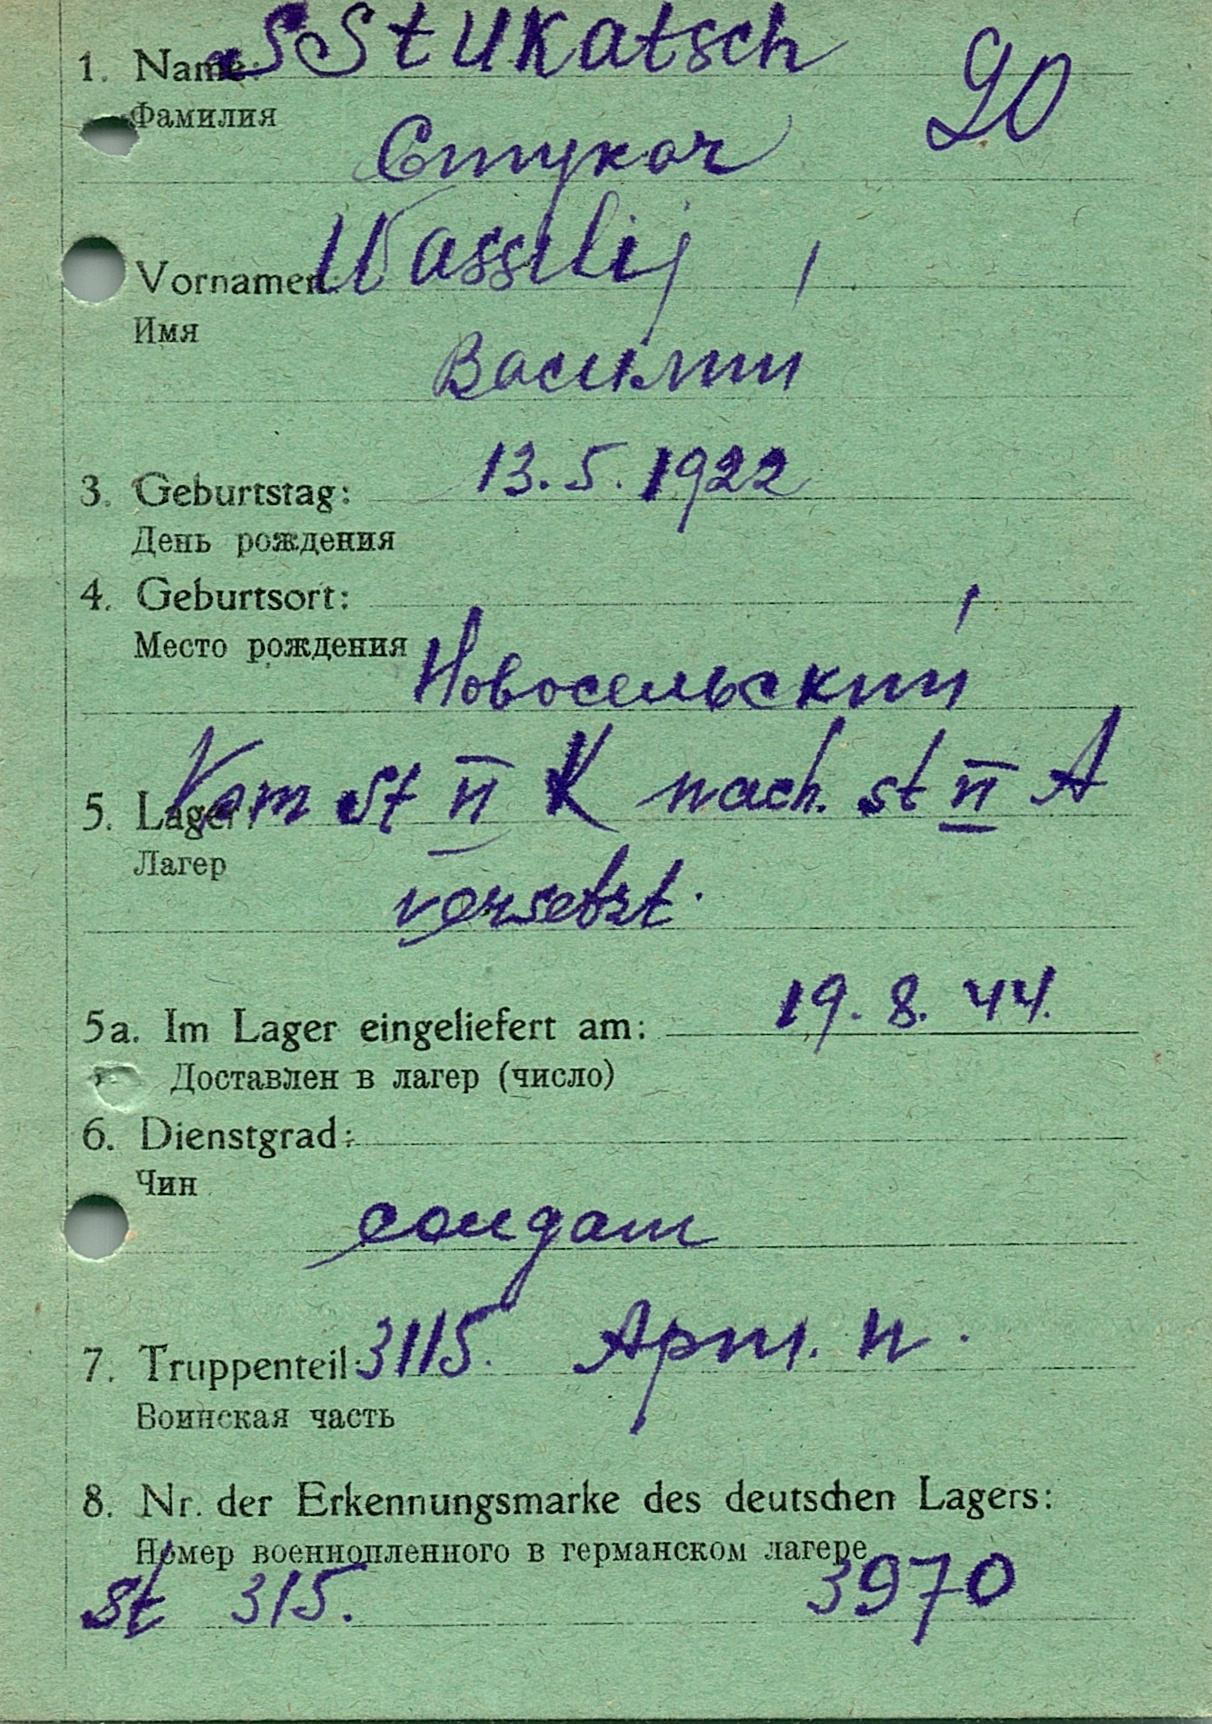 1. Name: Stukatsch 90
Фамилия
Стукач
Vornamen: Wassilij
Имя
Василий
3. Geburtstag: 13.5.1922
День рождения
4. Geburtsort:
Место рождения Новосельский
Vom St II K nach. St II A
5. Lager:
Лагер
versetzt.
5a. Im Lager eingeliefert am: 19.8.44.
Доставлен в лагер (число)
6. Dienstgrad:
Чин
солдат
7. Truppenteil: 3115. Арт. п.
Воинская часть
8. Nr. der Erkennungsmarke des deutschen Lagers:
Номер военнопленного в германском лагере
St 315. 3970